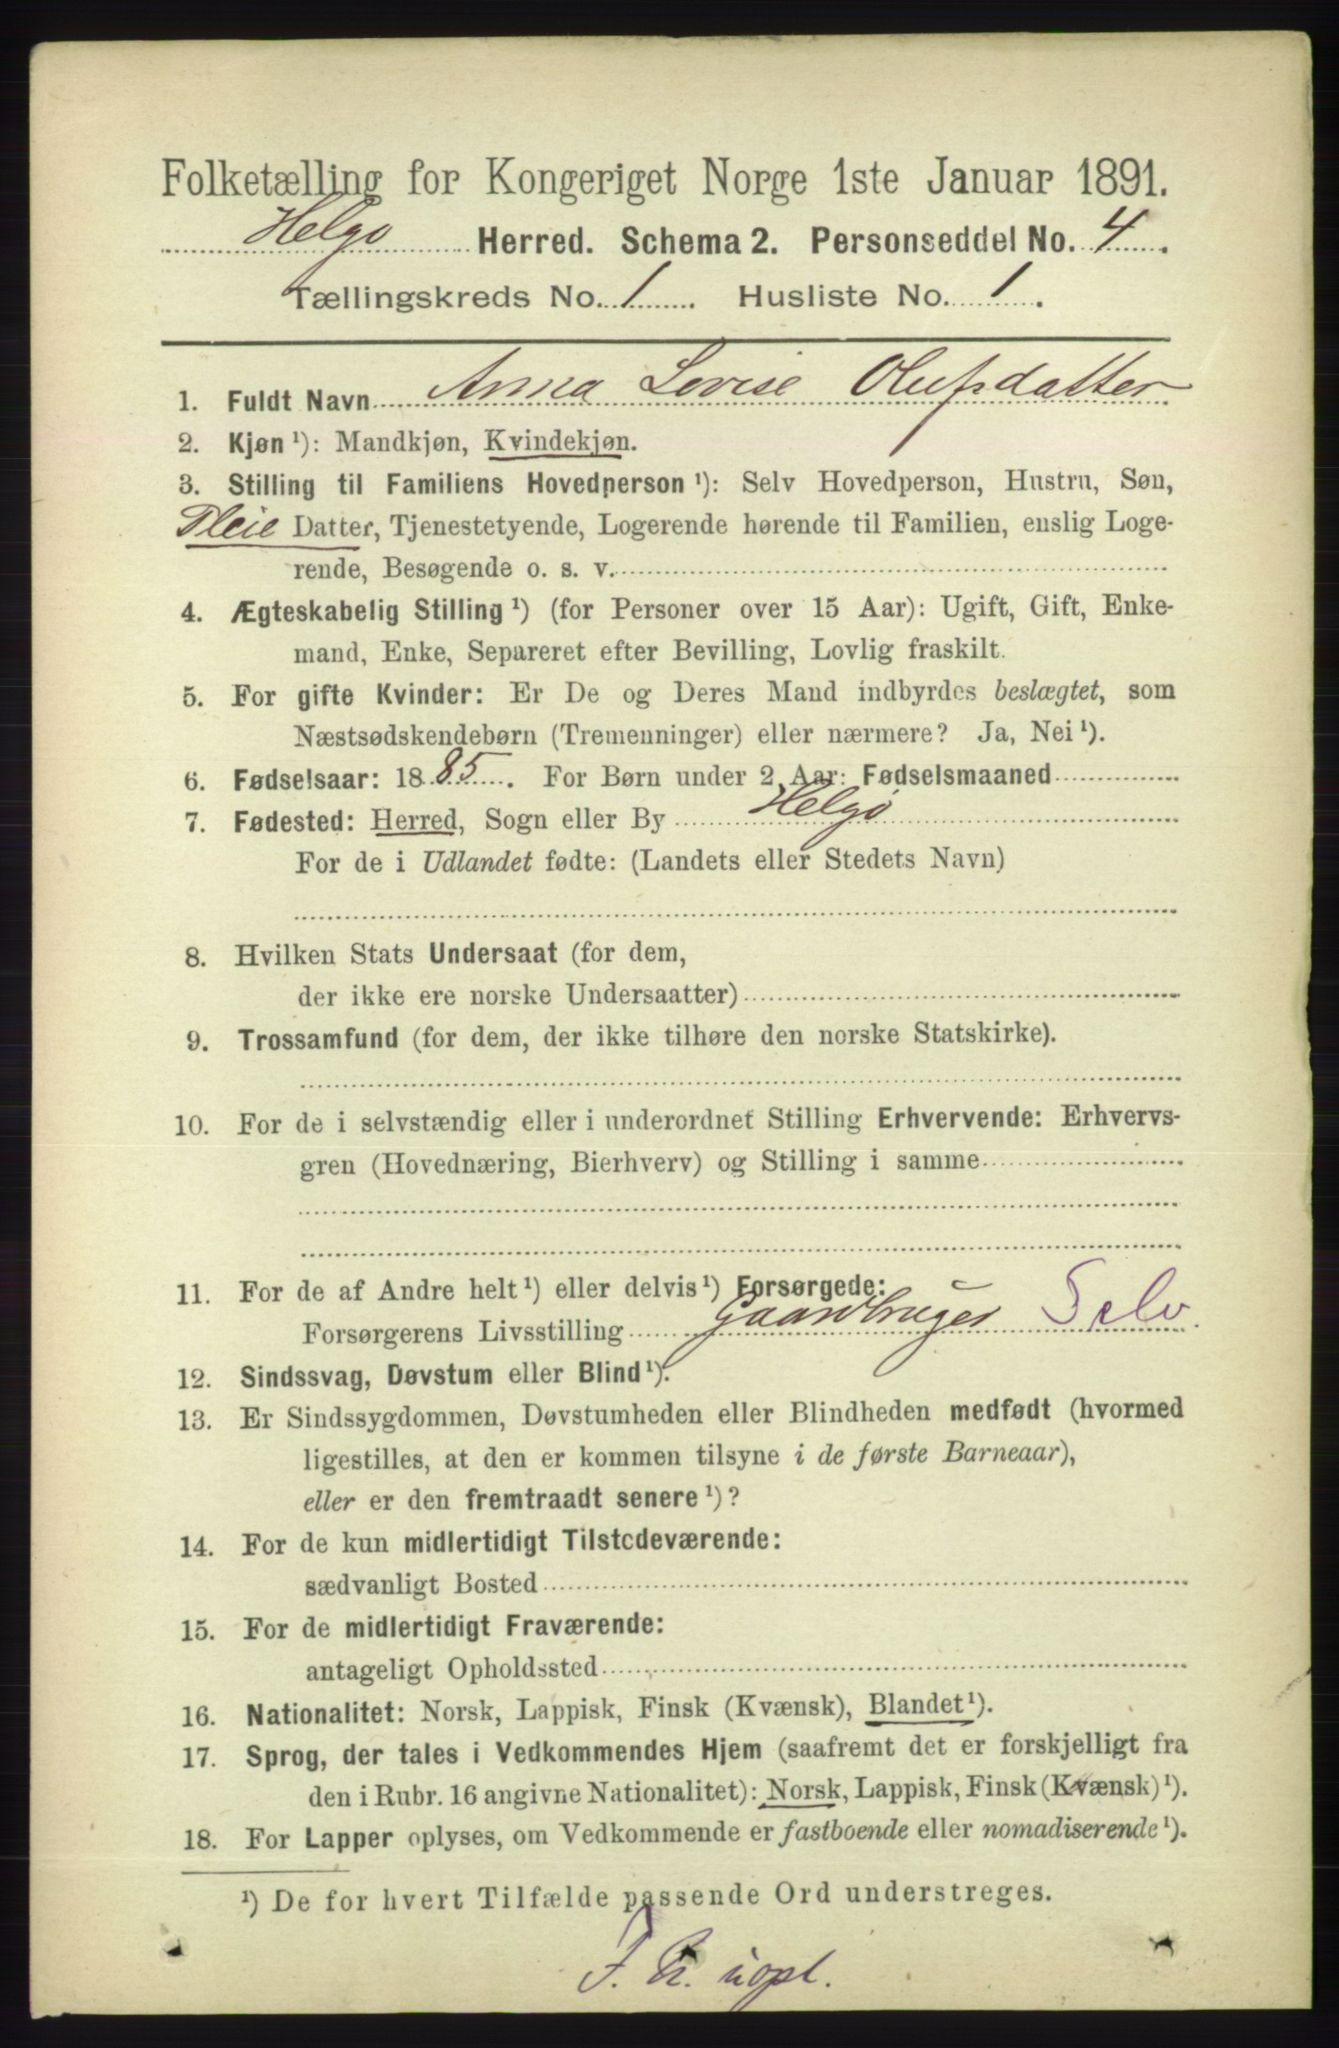 Folketælling for Kongeriget Norge 1ste Januar 1891.
Helgø Herred. Schema 2. Personseddel No. 4.
Tællingskreds No. 1. Husliste No. 1.
1. Fuldt Navn Anna Lovise Olufsdatter
2. Kjøn ¹): Mandkjøn, Kvindekjøn.
3. Stilling til Familiens Hovedperson ¹): Selv Hovedperson, Hustru, Søn,
Pleie Datter, Tjenestetyende, Logerende hørende til Familien, enslig Loge-
rende, Besøgende o. s. v.
4. Ægteskabelig Stilling ¹) (for Personer over 15 Aar): Ugift, Gift, Enke-
mand, Enke, Separeret efter Bevilling, Lovlig fraskilt.
5. For gifte Kvinder: Er De og Deres Mand indbyrdes beslægtet, som
Næstsødskendebørn (Tremenninger) eller nærmere? Ja, Nei ¹).
6. Fødselsaar: 1885. For Børn under 2 Aar: Fødselsmaaned
7. Fødested: Herred, Sogn eller By Helgø
For de i Udlandet fødte: (Landets eller Stedets Navn)
8. Hvilken Stats Undersaat (for dem,
der ikke ere norske Undersaatter)
9. Trossamfund (for dem, der ikke tilhøre den norske Statskirke).
10. For de i selvstændig eller i underordnet Stilling Erhvervende: Erhvervs-
gren (Hovednæring, Bierhverv) og Stilling i samme
11. For de af Andre helt ¹) eller delvis ¹) Forsørgede:
Forsørgerens Livsstilling Gaardbruger Selv.
12. Sindssvag, Døvstum eller Blind ¹).
13. Er Sindssygdommen, Døvstumheden eller Blindheden medfødt (hvormed
ligestilles, at den er kommen tilsyne i de første Barneaar),
eller er den fremtraadt senere ¹)?
14. For de kun midlertidigt Tilstedeværende:
sædvanligt Bosted
15. For de midlertidigt Fraværende:
antageligt Opholdssted
16. Nationalitet: Norsk, Lappisk, Finsk (Kvænsk), Blandet ¹).
17. Sprog, der tales i Vedkommendes Hjem (saafremt det er forskjelligt fra
den i Rubr. 16 angivne Nationalitet): Norsk, Lappisk, Finsk (Kvænsk) ¹).
18. For Lapper oplyses, om Vedkommende er fastboende eller nomadiserende ¹).
¹) De for hvert Tilfælde passende Ord understreges.
uopl.